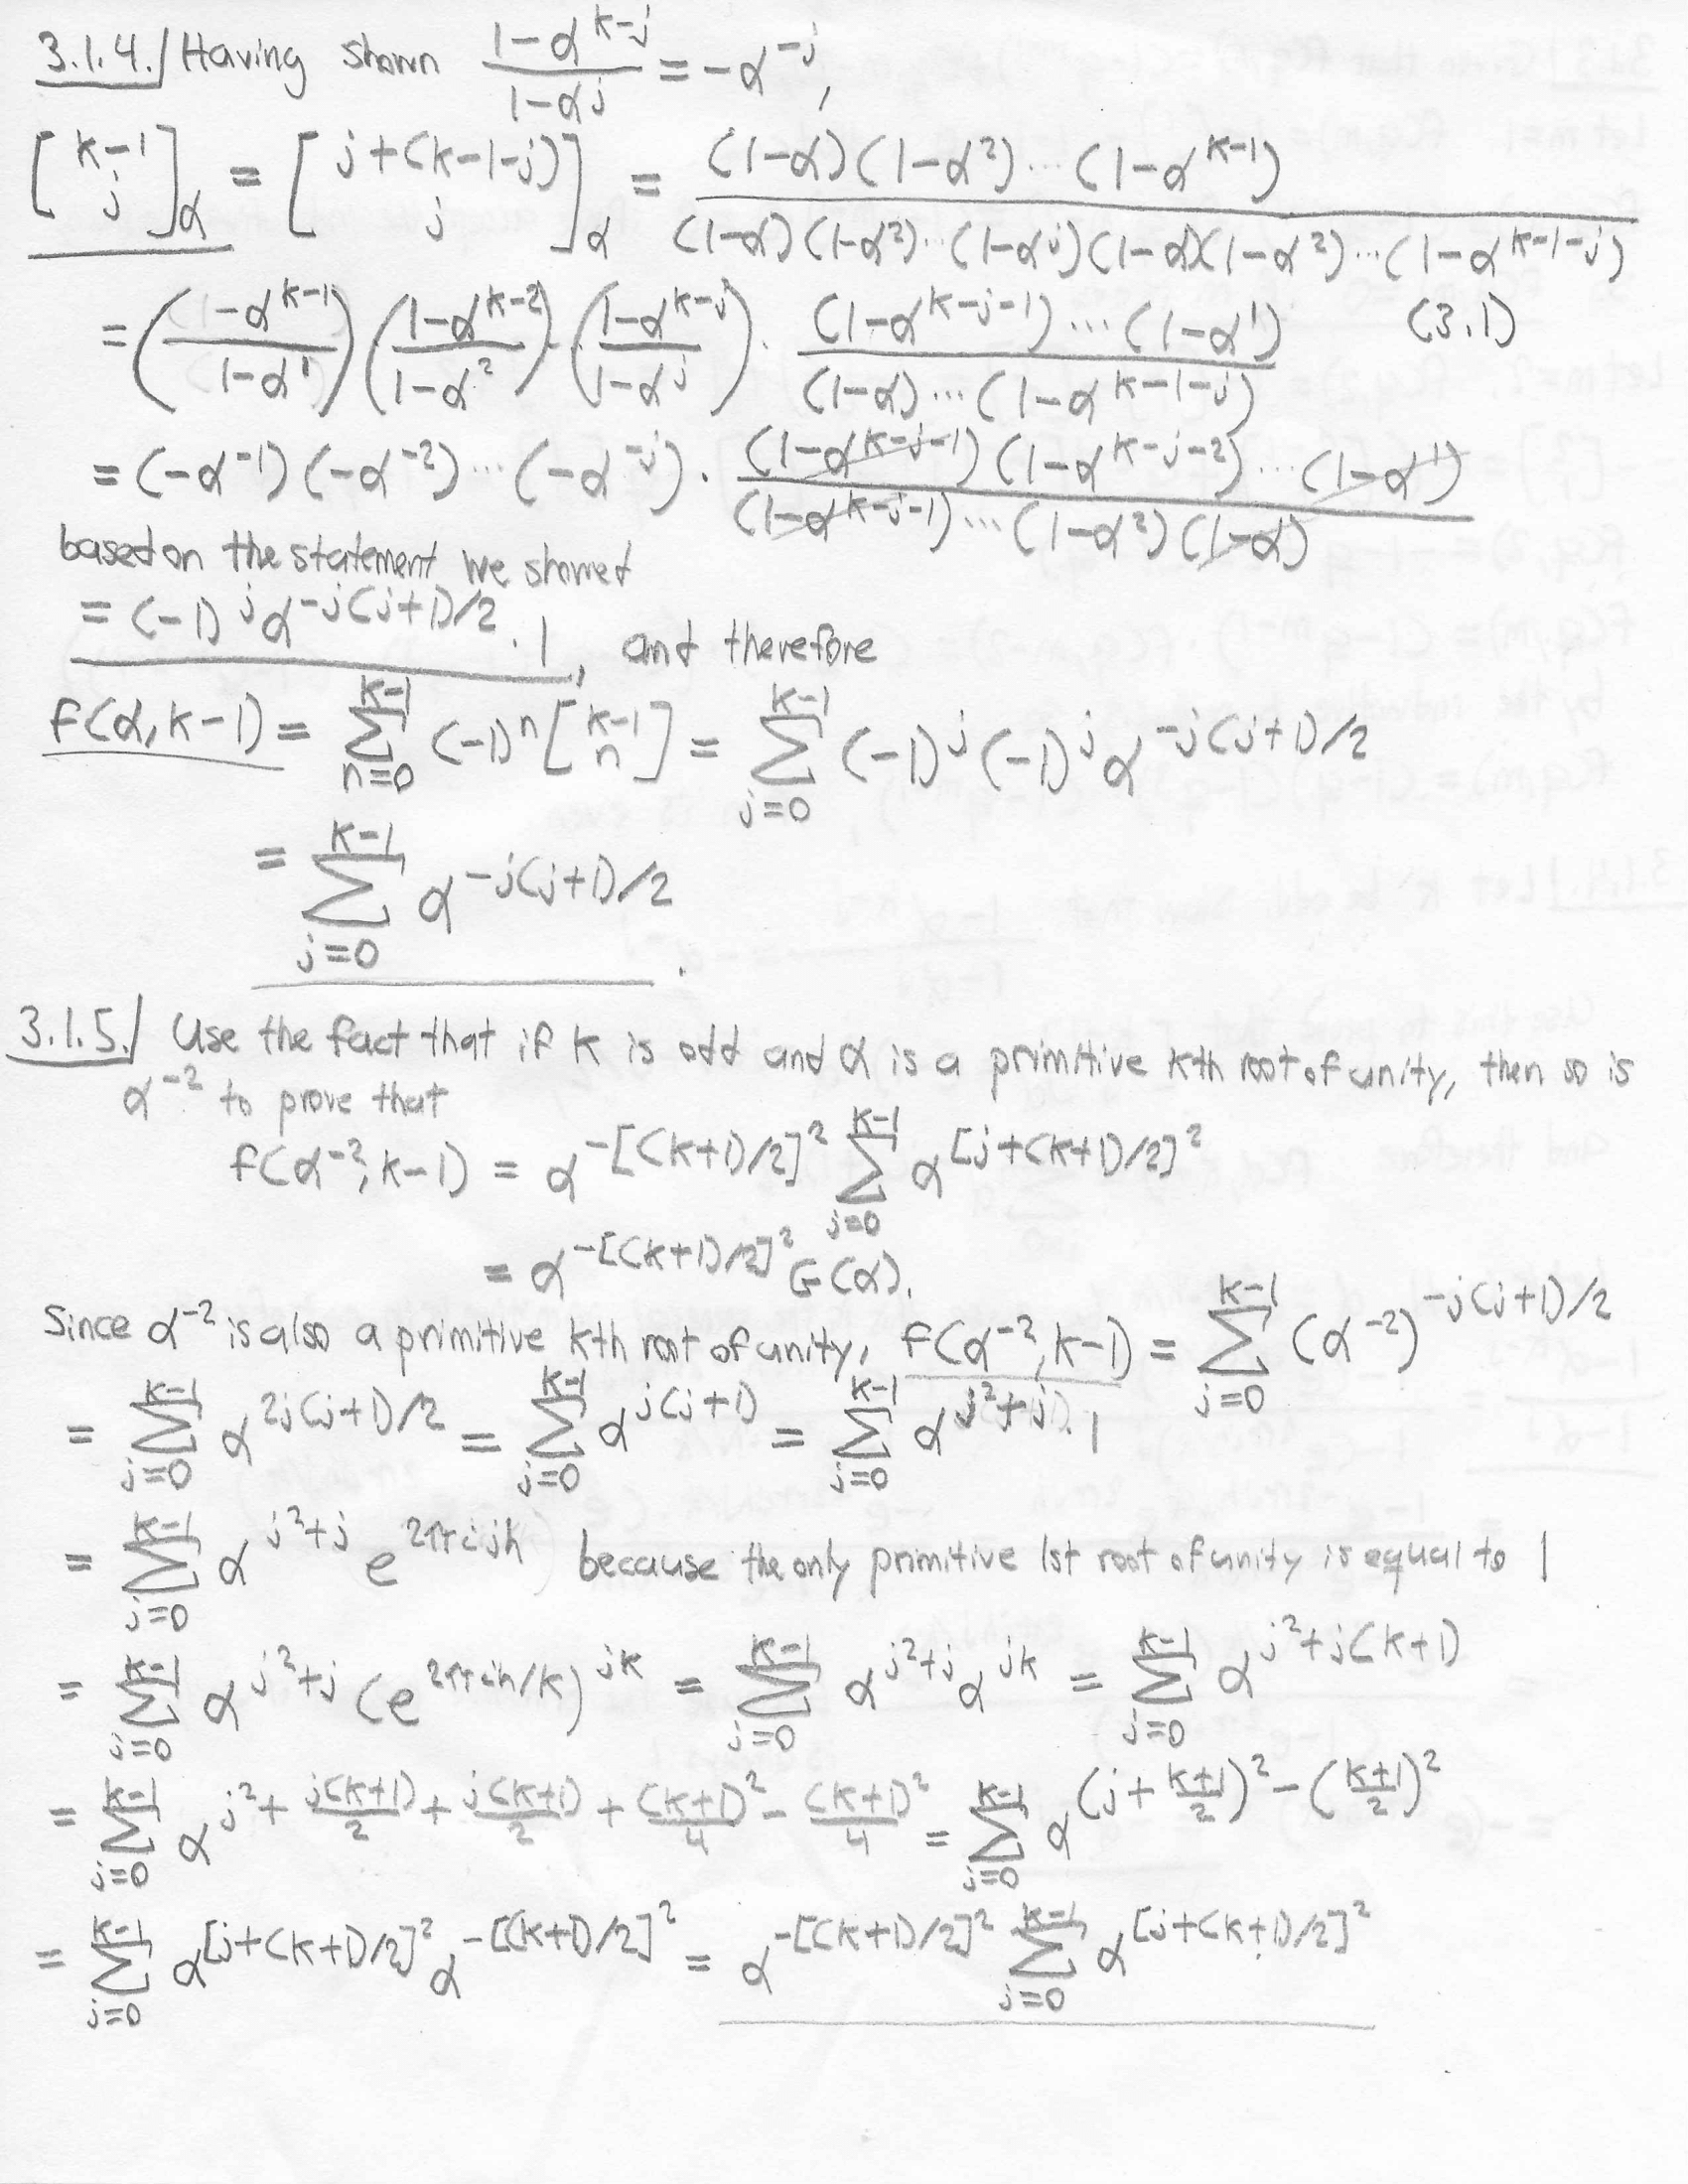 3.1.4. Having shown \frac{1-α^{k-j}}{1-α^j} = -α^{-j},
[k-1 \atop j]_α = [j+(k-1-j) \atop j]_α = \frac{(1-α)(1-α^2)...(1-α^{k-1})}{(1-α)(1-α^2)...(1-α^j)(1-α)(1-α^2)...(1-α^{k-1-j})}
= (\frac{1-α^{k-1}}{1-α^1})(\frac{1-α^{k-2}}{1-α^2})...(\frac{1-α^{k-j}}{1-α^j}) · \frac{(1-α^{k-j-1})...(1-α^1)}{(1-α)...(1-α^{k-1-j})} (3.1)
= (-α^{-1})(-α^{-2})...(-α^{-j}) · \frac{(1-α^{k-j-1})(1-α^{k-j-2})...(1-α^1)}{(1-α^{k-j-1})...(1-α^2)(1-α)}
based on the statement we showed
= (-1)^j α^{-j(j+1)/2} · 1, and therefore
f(α, k-1) = \sum_{n=0}^{k-1} (-1)^n [k-1 \atop n] = \sum_{j=0}^{k-1} (-1)^j (-1)^j α^{-j(j+1)/2}
= \sum_{j=0}^{k-1} α^{-j(j+1)/2}.
3.1.5. Use the fact that if k is odd and α is a primitive kth root of unity, then so is
α^{-2} to prove that
f(α^{-2}, k-1) = α^{-[(k+1)/2]^2} \sum_{j=0}^{k-1} α^{[j+(k+1)/2]^2}
= α^{-[(k+1)/2]^2} G(α).
Since α^{-2} is also a primitive kth root of unity, f(α^{-2}, k-1) = \sum_{j=0}^{k-1} (α^{-2})^{-j(j+1)/2}
= \sum_{j=0}^{k-1} α^{2j(j+1)/2} = \sum_{j=0}^{k-1} α^{j(j+1)} = \sum_{j=0}^{k-1} α^{j^2+j} · 1
= \sum_{j=0}^{k-1} α^{j^2+j} e^{2πijh} because the only primitive 1st root of unity is equal to 1
= \sum_{j=0}^{k-1} α^{j^2+j} (e^{2πih/k})^{jk} = \sum_{j=0}^{k-1} α^{j^2+j} α^{jk} = \sum_{j=0}^{k-1} α^{j^2+j(k+1)}
= \sum_{j=0}^{k-1} α^{j^2+\frac{j(k+1)}{2}+\frac{j(k+1)}{2}+\frac{(k+1)^2}{4}-\frac{(k+1)^2}{4}} = \sum_{j=0}^{k-1} α^{(j+\frac{k+1}{2})^2-(\frac{k+1}{2})^2}
= \sum_{j=0}^{k-1} α^{[j+(k+1)/2]^2} α^{-[(k+1)/2]^2} = α^{-[(k+1)/2]^2} \sum_{j=0}^{k-1} α^{[j+(k+1)/2]^2}